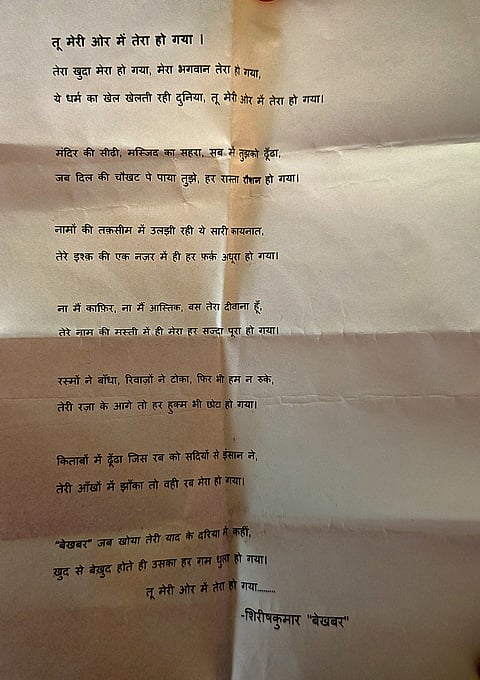 तू मेरी ओर में तेरा हो गया ।
तेरा खुदा मेरा हो गया, मेरा भगवान तेरा हो गया,
ये धर्म का खेल खेलती रही दुनिया, तू मेरी ओर में तेरा हो गया।
मंदिर की सीढी, मस्जिद का सहरा, सब में तुझको ढूँढा,
जब दिल की चौखट पे पाया तुझे, हर रास्ता रौशन हो गया।
नामों की तक़सीम में उलझी रही ये सारी कायनात,
तेरे इश्क की एक नजर में ही हर फर्क़ अधूरा हो गया।
ना मैं काफ़िर, ना मैं आस्तिक, बस तेरा दीवाना हूँ,
तेरे नाम की मस्ती में ही मेरा हर सज्दा पूरा हो गया।
रस्मों ने बाँधा, रिवाज़ों ने टोका, फिर भी हम न रुके,
तेरी रज़ा के आगे तो हर हुक्म भी छोटा हो गया।
किताबों में ढूँढा जिस रब को सदियों से इंसान ने,
तेरी आँखों में झाँका तो वही रब मेरा हो गया।
"बेखबर" जब खोया तेरी याद के दरिया में कहीं,
ख़ुद से बेख़ुद होते ही उसका हर गम धुला हो गया।
तू मेरी ओर में तेरा हो गया.........
-शिरीषकुमार "बेखबर"